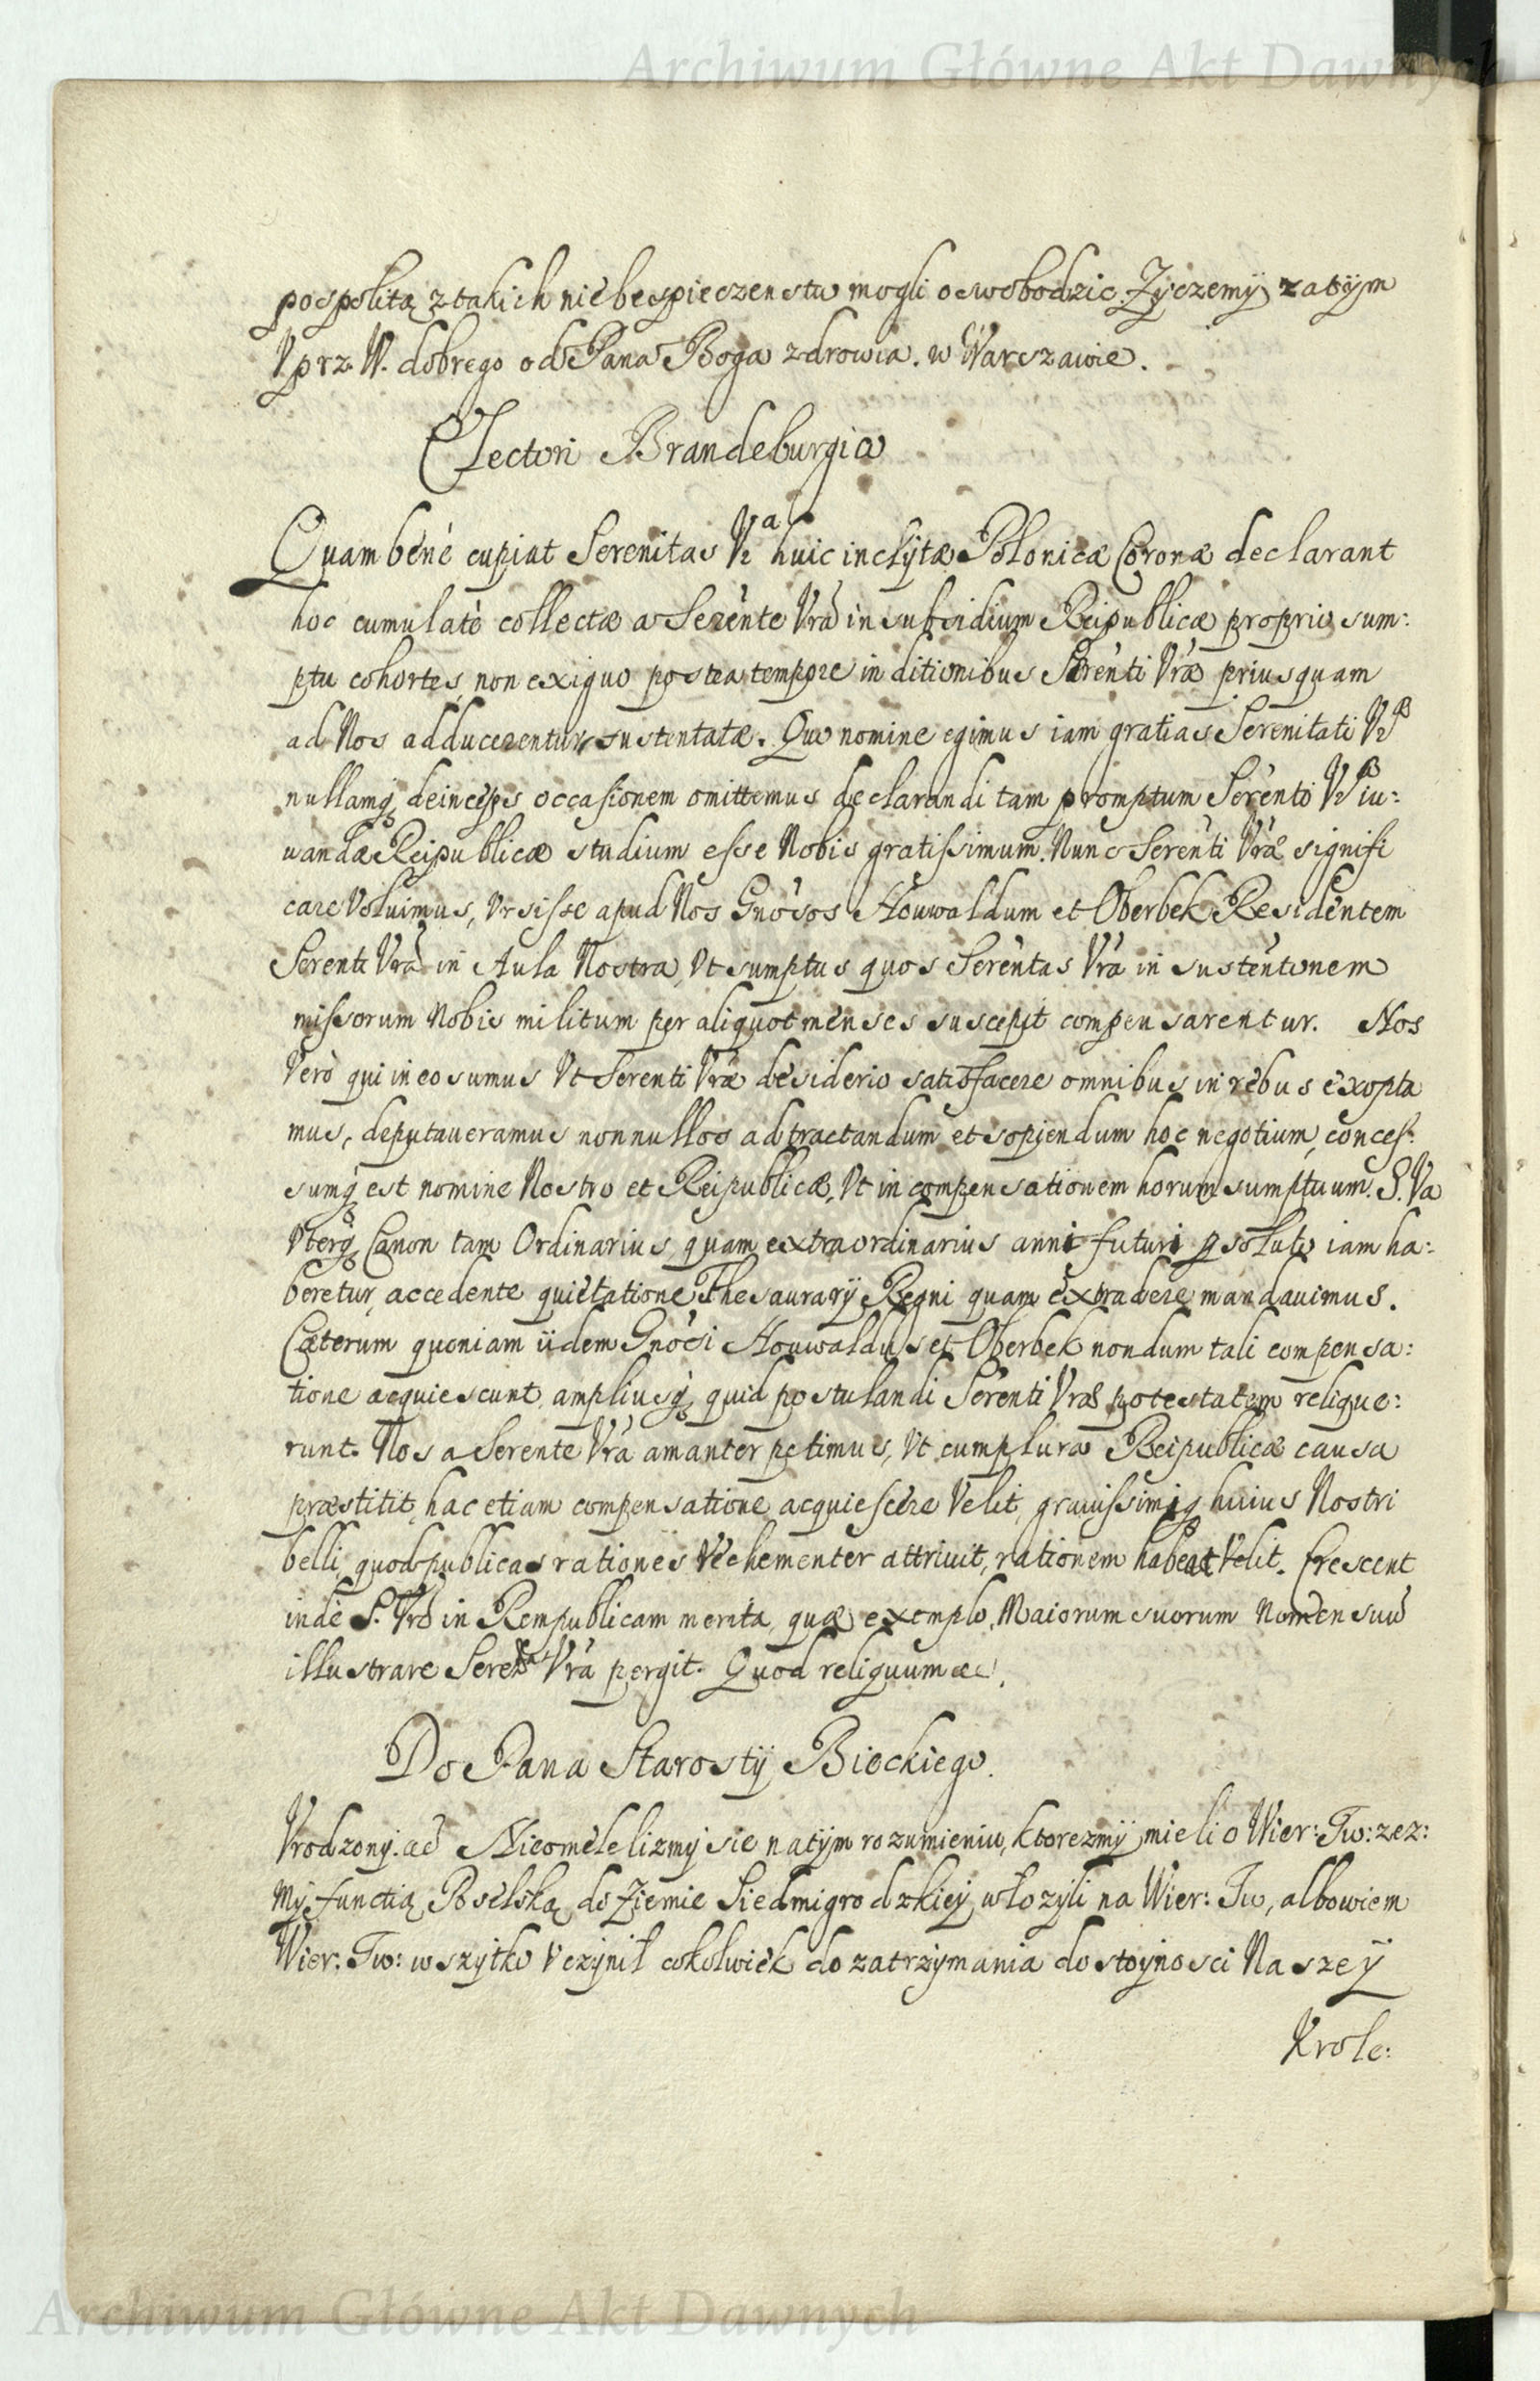 Archiwum Główne Akt Dawnych
pospolitą z takich niebespieczenstw mogli oswobodzic. Zÿczemÿ zatÿm
Vprz. W. dobrego od Pana Boga zdrowia. w Warszawie.
Electori Brandeburgico
Quam bené cupiat Serenitas Vrᵃ huic inclÿtæ Polonicæ Coronæ declarant
hoc cumulatè collectæ a Serénte Vrã in subsidium Reipublicæ proprio sum:
ptu cohortes, non exiguo postea tempore in ditionibus Serénti Vræ priusquam
ad Nos adducerentur, sustentatæ. Quo nomine egimus iam gratias Serenitati Vræ
nullamq deinceps occasionem omittemus declarandi tam promptum Serénti Vræ iu:
uandæ Reipublicæ studium esse Nobis gratissimum. Nunc Serénti Vræ signifi
care Voluimus, Vrsisse apud Nos Gnósos Houwaldum et Oberbek Residentem
Serenti Vræ in Aula Nostra, Vt sumptus quos Seréntas Vrã in susténtonem
missorum Nobis militum per aliquot menses suscepit compensarentur. Nos
Verò qui in eo sumus Vt Serenti Vræ desiderio satisfacere omnibus in rebus exopta
mus, deputaueramus nonnullos ad tractandum et sopiendum hoc negotium, conces:
sumq est nomine Nostro et Reipublicæ, Vt in compensationem horum sumptuum. S. Va
Vterq Canon tam Ordinarius, quam extraordinarius anni futuri p soluto iam ha:
beretur, accedente quietatione Thesaurarÿ Regni quam extradere mandauimus.
Cæterum quoniam iidem Gnósi Houwaldus et Oberbek nondum tali compensa:
tione acquiescunt, ampliusq quid postulandi Serénti Vræ potestatem relique:
runt. Nos a Serente Vrã amanter petimus, Vt cum plura Reipublicæ causa
præstitit, hac etiam compensatione acquiescere Velit, grauissimiq huius Nostri
belli, quod publicas rationes Vehementer attriuit, rationem habeat Velit. Crescent
indè S. Vræ in Rempublicam merita, quæ exemplo Maiorum suorum Nomen suũ
illustrare Serentas Vrã pergit. Quod reliquum &c.
Do Pana Starostÿ Bieckiego.
Vrodzonÿ. &c Nieomÿlelizmÿ sie na tÿm rozumieniu, ktorezmÿ mieli o Wier: Tw: zez:
mÿ functią Poselską do Ziemie Siedmigrodzkiey włozÿli na Wier: Tw, albowiem
Wier: Tw: wszÿtko Vczÿnił cokolwiek do zatrzÿmania dostoÿnosci Naszeÿ
Krole:
Archiwum Główne Akt Dawnych